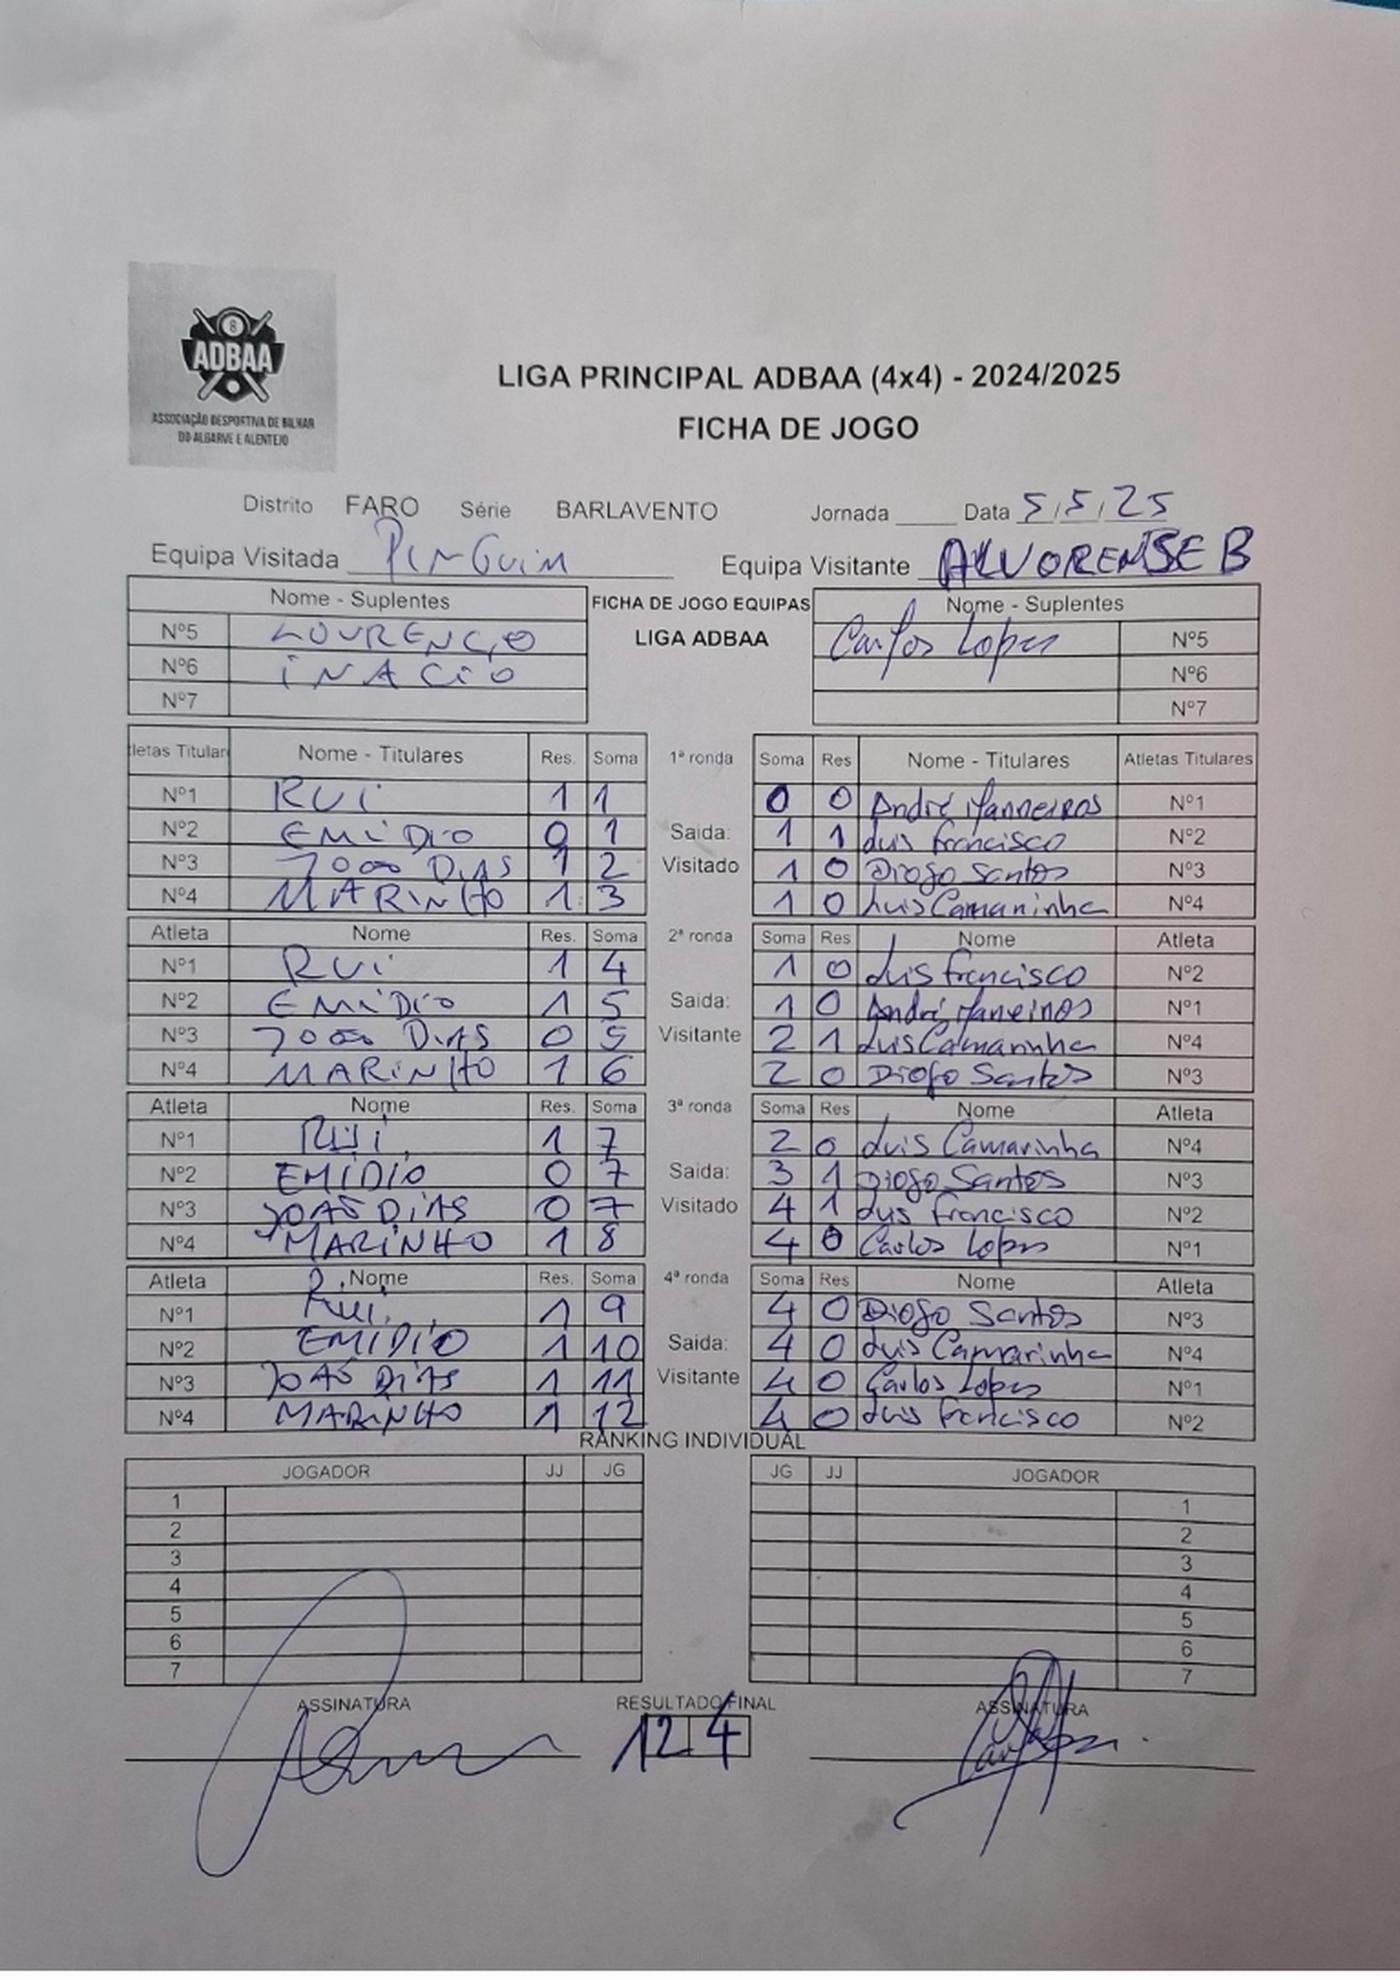 8
ADBAA
ASSOCIAÇÃO DESPORTIVA DE BILHAR
DO ALGARVE E ALENTEJO
LIGA PRINCIPAL ADBAA (4x4) - 2024/2025
FICHA DE JOGO
Distrito FARO Série BARLAVENTO Jornada ____ Data 5/5/25
Equipa Visitada PINGUIM Equipa Visitante ALVORENSE B
Nome - Suplentes FICHA DE JOGO EQUIPAS Nome - Suplentes
Nº5 LOURENÇO LIGA ADBAA Carlos Lopes Nº5
Nº6 INACIO Nº6
Nº7 Nº7
tletas Titular Nome - Titulares Res. Soma 1ª ronda Soma Res Nome - Titulares Atletas Titulares
Nº1 RUI 1 1 0 0 André Nº1
Nº2 EMÍDIO 0 1 Saida: 1 1 Luis Francisco Nº2
Nº3 JOAO DIAS 1 2 Visitado 1 0 Diogo Santos Nº3
Nº4 MARINHO 1 3 1 0 Luis Camarinha Nº4
Atleta Nome Res. Soma 2ª ronda Soma Res Nome Atleta
Nº1 RUI 1 4 1 0 Luis Francisco Nº2
Nº2 EMÍDIO 1 5 Saida: 1 0 André Nº1
Nº3 JOAO DIAS 0 5 Visitante 2 1 Luis Camarinha Nº4
Nº4 MARINHO 1 6 2 0 Diogo Santos Nº3
Atleta Nome Res. Soma 3ª ronda Soma Res Nome Atleta
Nº1 RUI 1 7 2 0 Luis Camarinha Nº4
Nº2 EMÍDIO 0 7 Saida: 3 1 Diogo Santos Nº3
Nº3 JOAO DIAS 0 7 Visitado 4 1 Luis Francisco Nº2
Nº4 MARINHO 1 8 4 0 Carlos Lopes Nº1
Atleta Nome Res. Soma 4ª ronda Soma Res Nome Atleta
Nº1 Rui 1 9 4 0 Diogo Santos Nº3
Nº2 EMÍDIO 1 10 Saida: 4 0 Luis Camarinha Nº4
Nº3 JOAO DIAS 1 11 Visitante 4 0 Carlos Lopes Nº1
Nº4 MARINHO 1 12 4 0 Luis Francisco Nº2
RANKING INDIVIDUAL
JOGADOR JJ JG JG JJ JOGADOR
1 1
2 2
3 3
4 4
5 5
6 6
7 7
ASSINATURA RESULTADO FINAL ASSINATURA
12 4